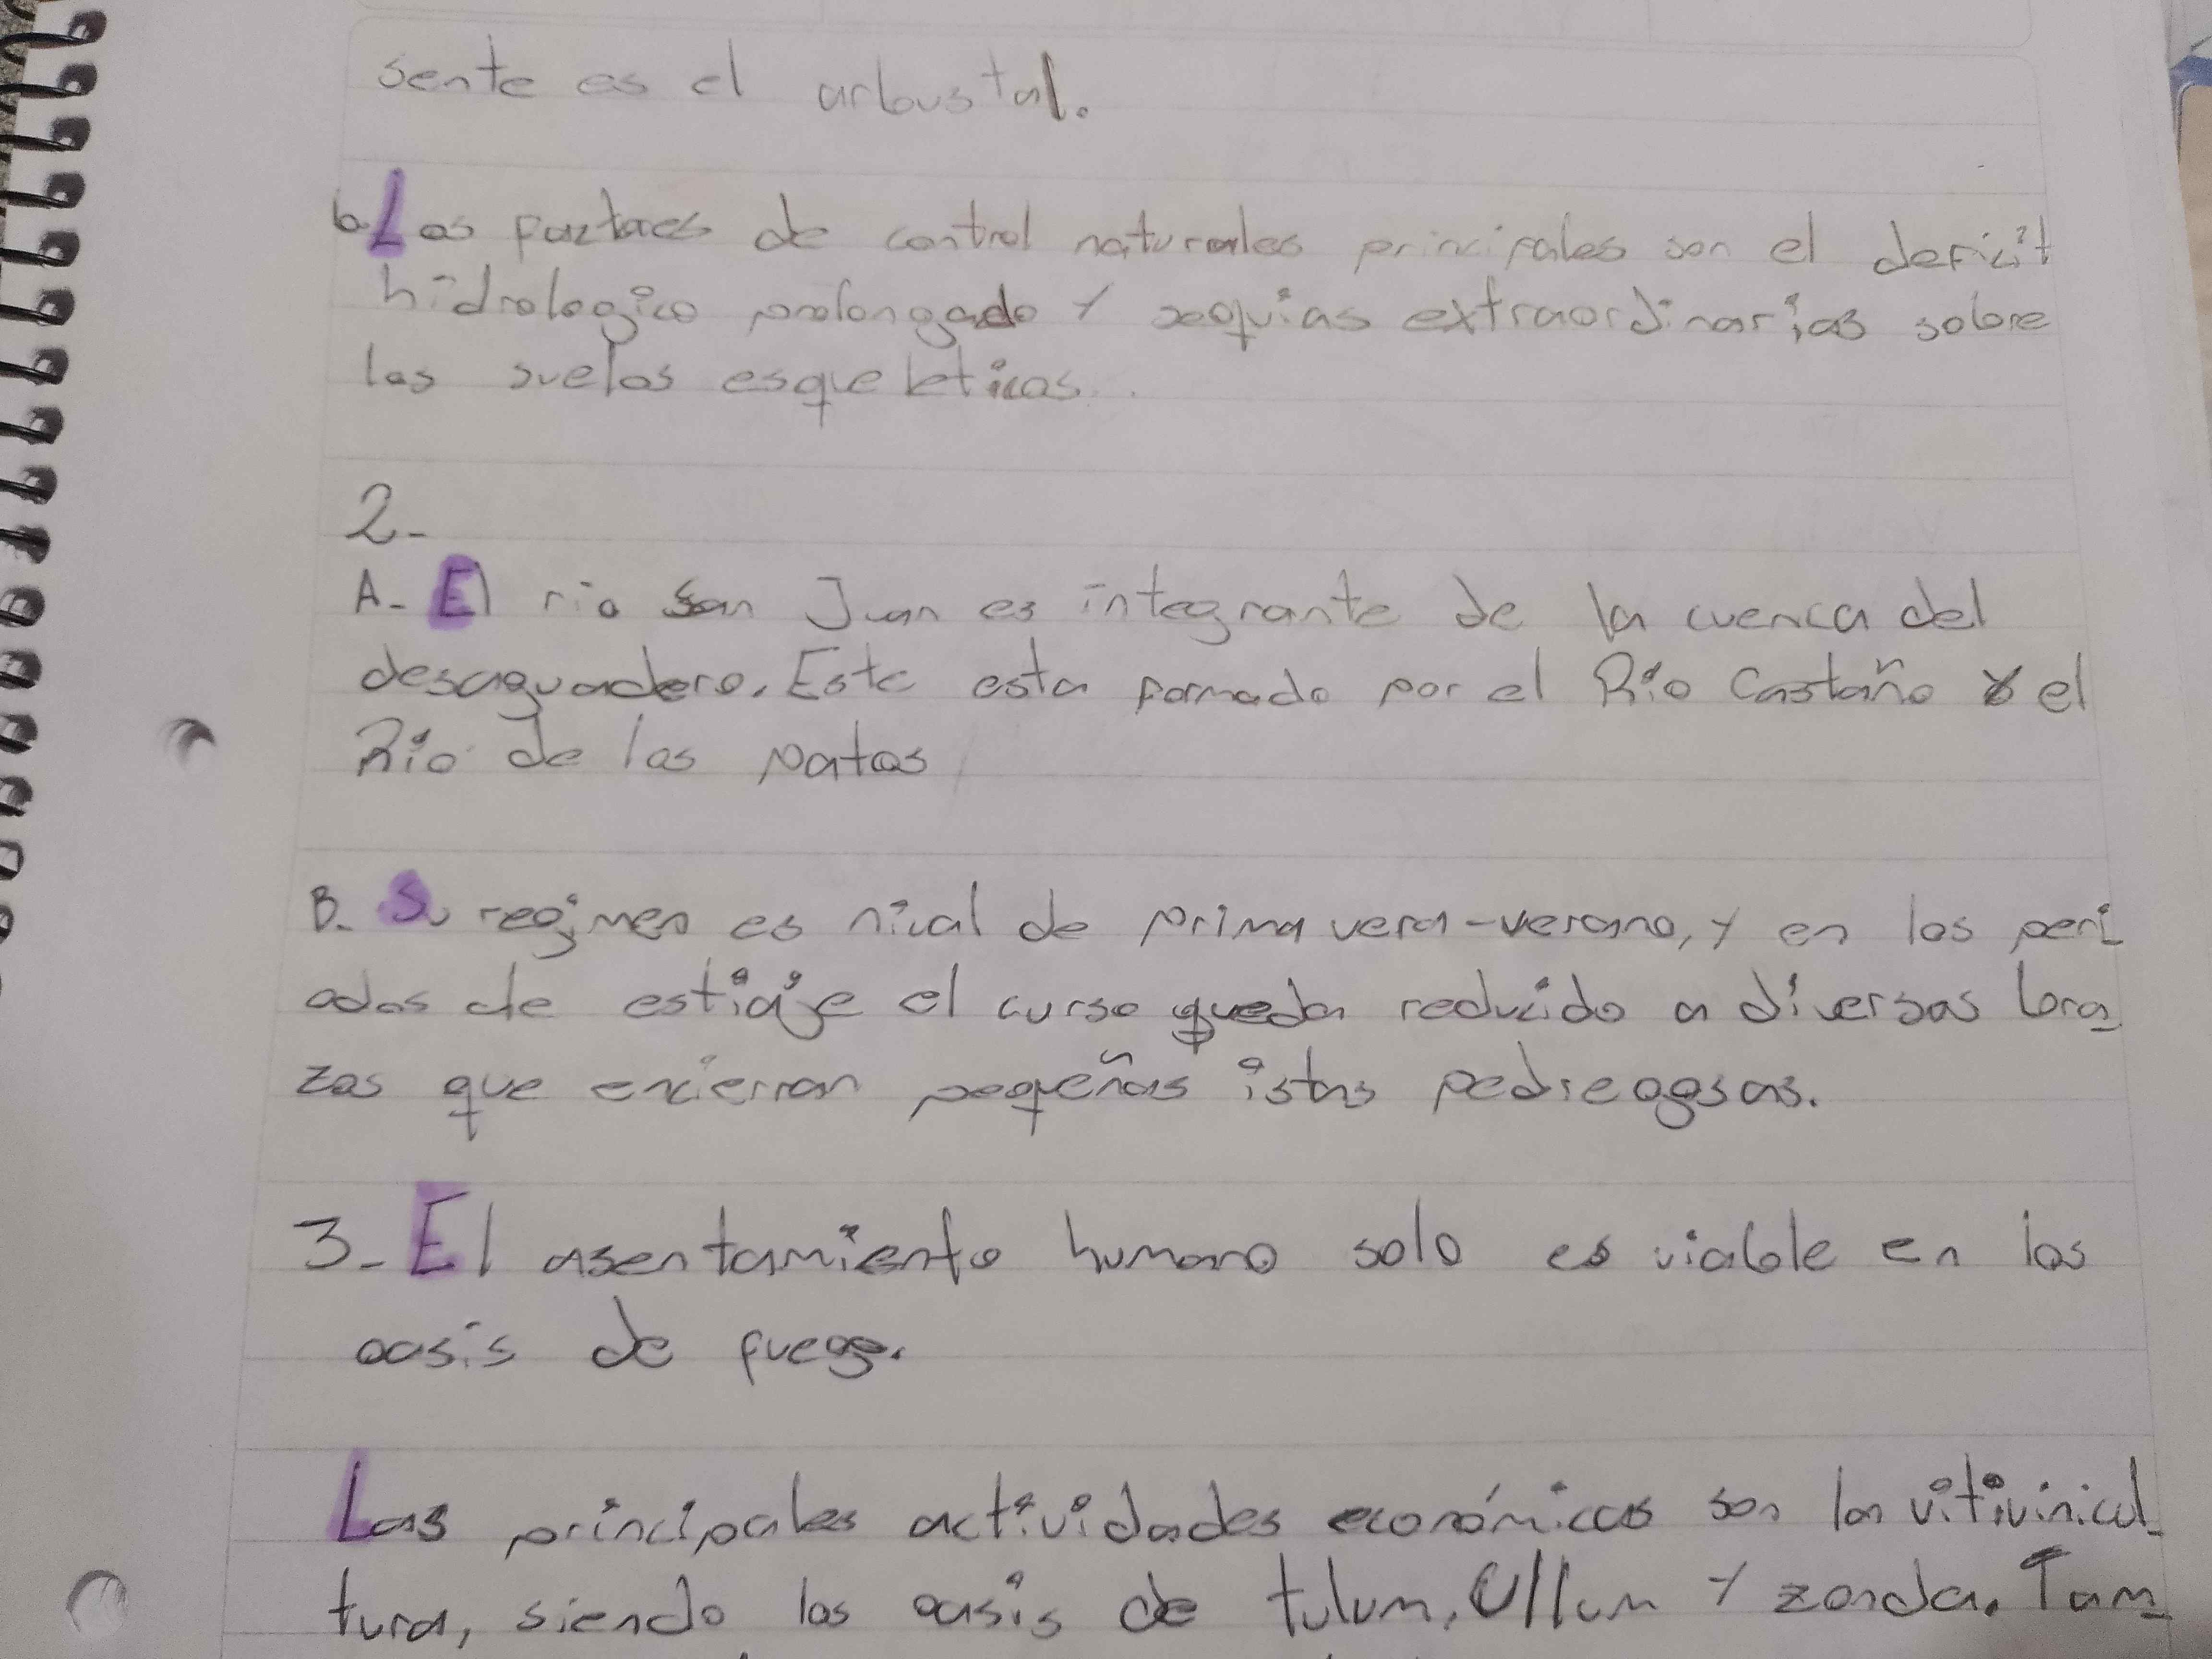 sente es el arbustal.
b. Los factores de control naturales principales son el deficit
hidrologico prolongado y sequias extraordinarias sobre
los suelos esqueleticos.
2-
A- El rio San Juan es integrante de la cuenca del
desaguadero. Este esta formado por el Río Castaño y el
Río de los patos
B. Su regimen es nival de primavera-verano, y en los peri
odos de estiaje el curso queda reducido a diversos bra_
zos que encierran pequeñas islas pedregosas.
3- El asentamiento humano solo es viable en los
oasis de fuego.
Las principales actividades económicas son la vitivinicul_
tura, siendo los oasis de tulum, Ullum y zonda. Tam_